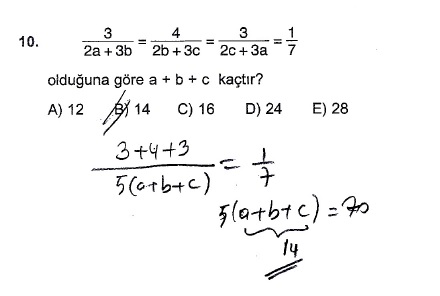 10. 3/(2a + 3b) = 4/(2b + 3c) = 3/(2c + 3a) = 1/7
olduğuna göre a + b + c kaçtır?
A) 12 B) 14 C) 16 D) 24 E) 28
(3+4+3)/(5(a+b+c)) = 1/7
5(a+b+c) = 70
14